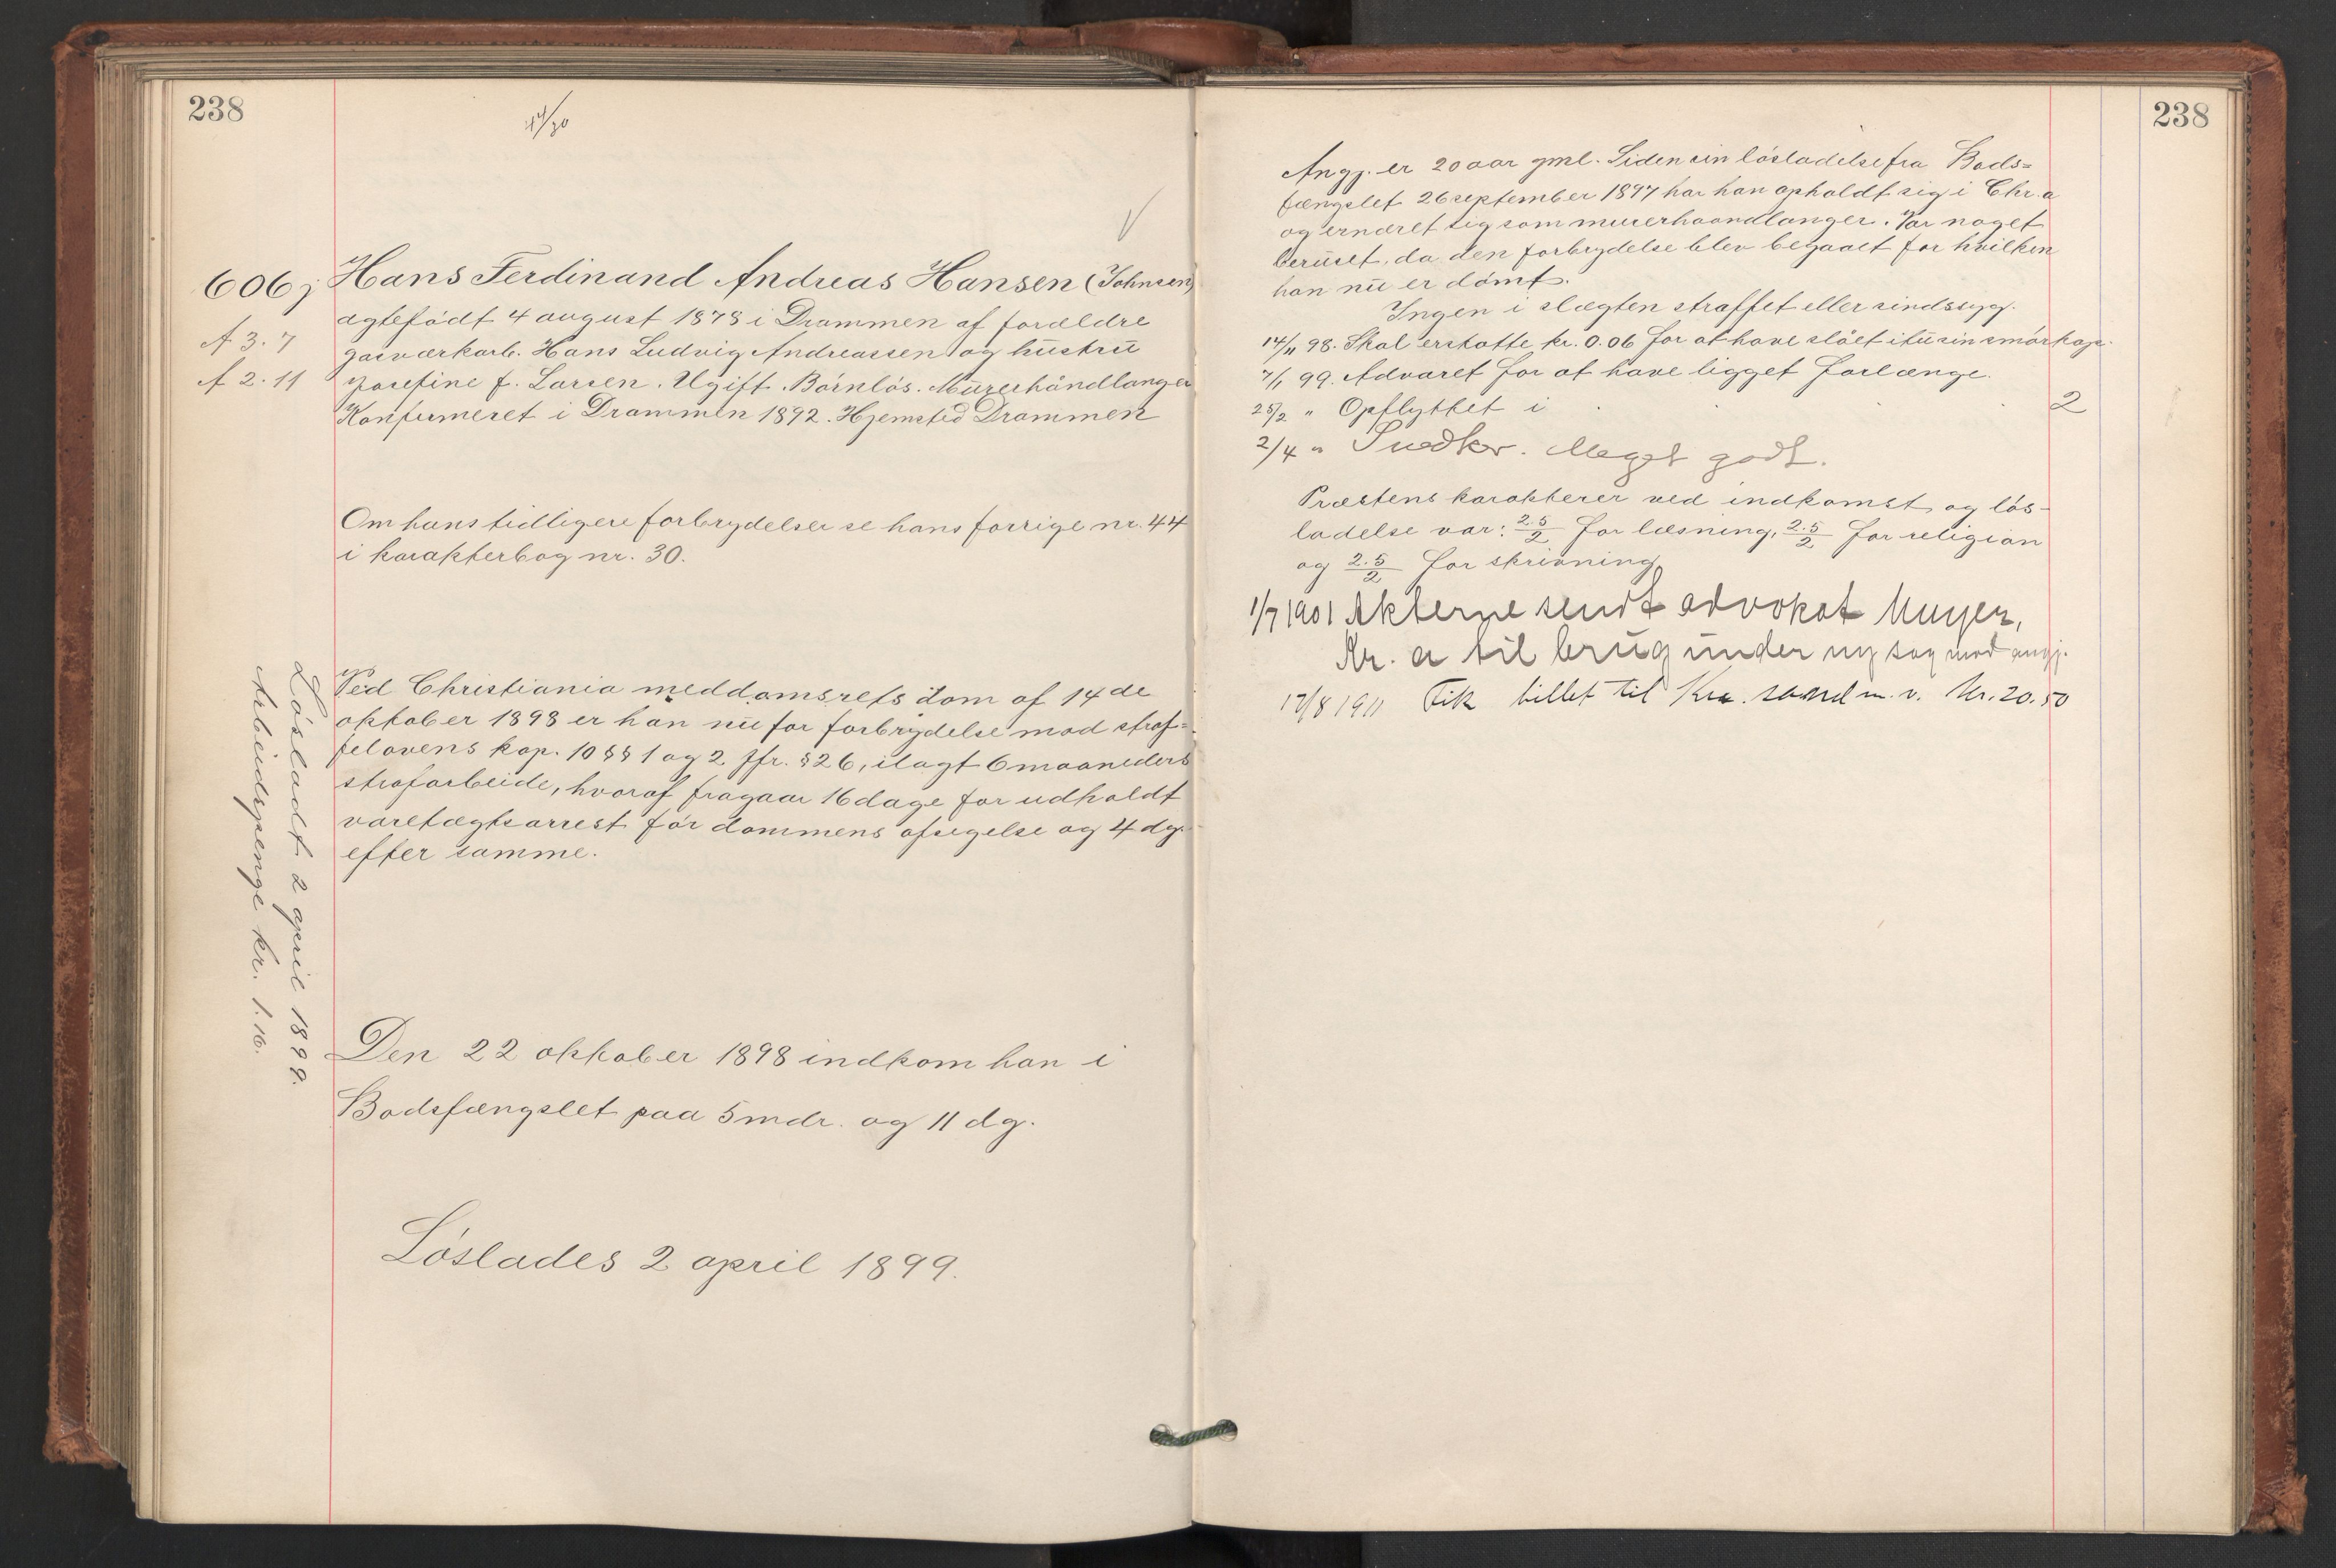 238
44/30
606j Hans Ferdinand Andreas Hansen (Johnsen)
A 3.7
A 2.11
ægtefödt 4 august 1878 i Drammen af forældre
gasværkarb. Hans Ludvig Andreassen og hustru
Josefine f. Larsen. Ugift. Börnlös. Murerhåndlanger
Konfirmeret i Drammen 1892. Hjemsted Drammen
Om hans tidligere forbrydelser se hans forrige nr. 44
i karakterbog nr. 30.
Ved Christiania meddomsrets dom af 14de
oktober 1898 er han nu for forbrydelse mod straf=
felovens kap. 10 §§ 1 og 2 jfr. § 26, ilagt 6 maaneders
strafarbeide, hvoraf fragaar 16 dage for udholdt
varetægtsarrest för dommens afsigelse og 4 dg.
efter samme.
Den 22 oktober 1898 indkom han i
Bodsfængslet paa 5 mdr. og 11 dg.
Löslades 2 april 1899.
Lösladt 2 april 1899.
Arbeidspenge kr. 1.16.
238
Angj. er 20 aar gml. Siden sin lösladelse fra Bods=
fængslet 26 september 1897 har han opholdt sig i Chr.a
og ernæret sig som murerhaandlanger. Var noget
beruset, da den forbrydelse blev begaaet for hvilken
han nu er dömt.
Ingen i slægten straffet eller sindssyg.
14/11 98. Skal erstatte kr. 0.06 for at have slået itu sin smörkop.
7/1 99. Advaret for at have ligget forlænge.
25/2 " Opflyttet i . . . 2
2/4 " Snedker. Meget godt.
Præstens karakterer ved indkomst og lös-
ladelse var: 2.5/2 for læsning, 2.5/2 for religion
og 2.5/2 for skrivning.
1/7 1901 Akterne sendt advokat
Kr.a til brug under ny sag mod angj.
17/8 1911 Fik billet til Kr. sand m. v. Kr. 20.50